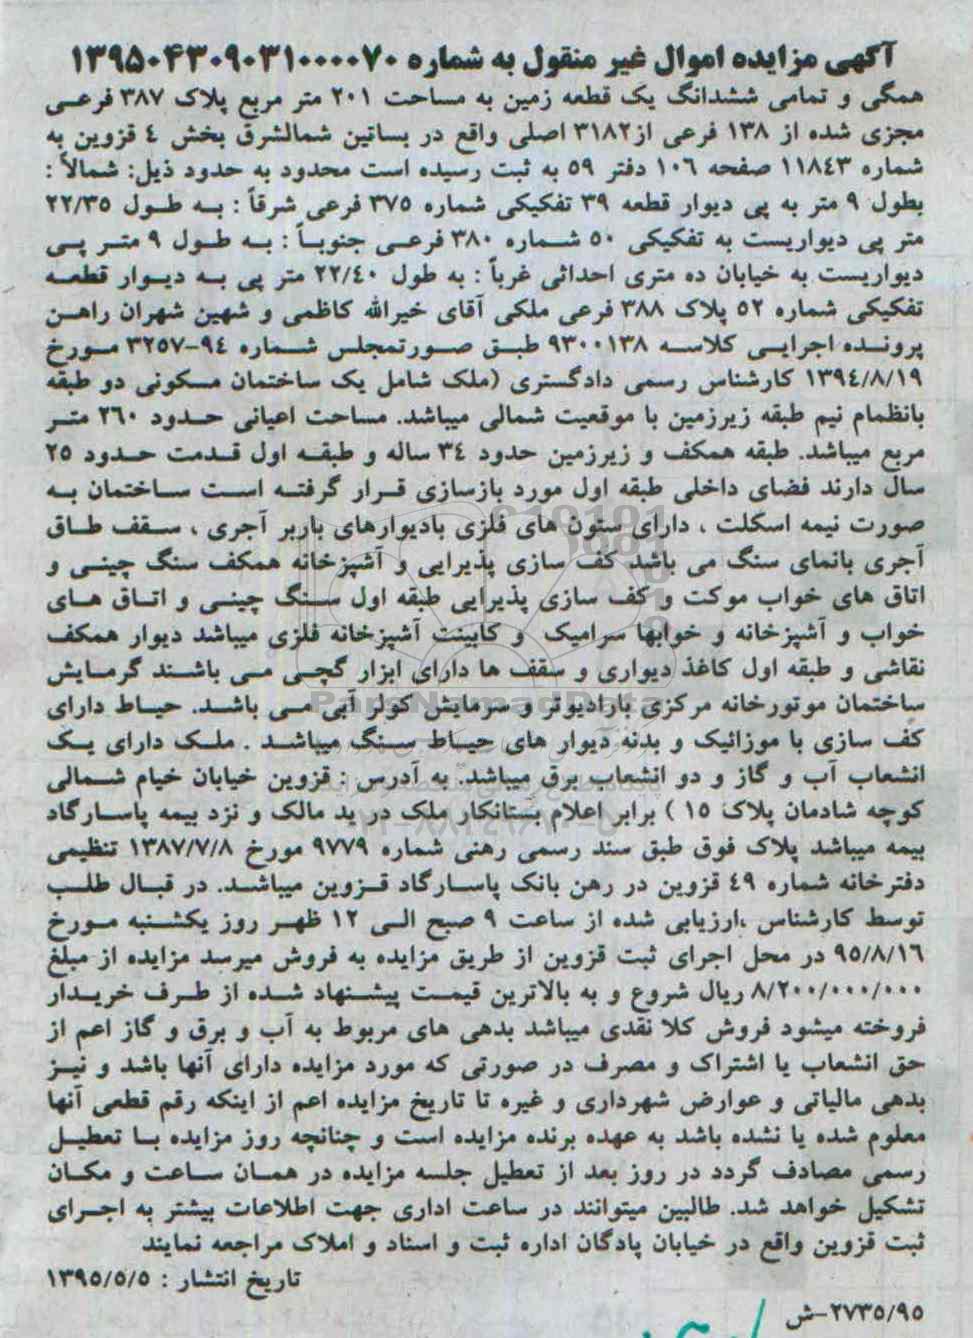 آگهی مزایده اموال غیر منقول به شماره ۱۳۹۵۰۴۳۰۹۰۳۱۰۰۰۰۷۰
همگی و تمامی ششدانگ یک قطعه زمین به مساحت ۲۰۱ متر مربع پلاک ۳۸۷ فرعی
مجزی شده از ۱۳۸ فرعی از۳۱۸۲ اصلی واقع در بساتین شمالشرق بخش ٤ قزوین به
شماره ۱۱۸٤۳ صفحه ۱۰٦ دفتر ۵۹ به ثبت رسیده است محدود به حدود ذیل: شمالاً :
بطول ۹ متر به پی دیوار قطعه ۳۹ تفکیکی شماره ۳۷۵ فرعی شرقاً : به طول ۲۲/۳۵
متر پی دیواریست به تفکیکی ۵۰ شماره ۳۸۰ فرعی جنوباً : به طول ۹ متر پی
دیواریست به خیابان ده متری احداثی غرباً : به طول ۲۲/٤۰ متر پی به دیوار قطعه
تفکیکی شماره ۵۲ پلاک ۳۸۸ فرعی ملکی آقای خیرالله کاظمی و شهین شهران راهن
پرونده اجرایی کلاسه ۹۳۰۰۱۳۸ طبق صورتمجلس شماره ۹٤-۳۲۵۷ مورخ
۱۳۹٤/۸/۱۹ کارشناس رسمی دادگستری (ملک شامل یک ساختمان مسکونی دو طبقه
بانظمام نیم طبقه زیرزمین با موقعیت شمالی میباشد. مساحت اعیانی حدود ۲٦۰ متر
مربع میباشد. طبقه همکف و زیرزمین حدود ۳٤ ساله و طبقه اول قدمت حدود ۲۵
سال دارند فضای داخلی طبقه اول مورد بازسازی قرار گرفته است ساختمان به
صورت نیمه اسکلت ، دارای ستون های فلزی بادیوارهای باربر آجری ، سقف طاق
آجری بانمای سنگ می باشد کف سازی پذیرایی و آشپزخانه همکف سنگ چینی و
اتاق های خواب موکت و کف سازی پذیرایی طبقه اول سنگ چینی و اتاق های
خواب و آشپزخانه و خوابها سرامیک و کابینت آشپزخانه فلزی میباشد دیوار همکف
نقاشی و طبقه اول کاغذ دیواری و سقف ها دارای ابزار گچی می باشند گرمایش
ساختمان موتورخانه مرکزی بارادیوتر و سرمایش کولر آبی می باشد. حیاط دارای
کف سازی با موزائیک و بدنه دیوار های حیاط سنگ میباشد . ملک دارای یک
انشعاب آب و گاز و دو انشعاب برق میباشد. به آدرس : قزوین خیابان خیام شمالی
کوچه شادمان پلاک ۱۵ ) برابر اعلام بستانکار ملک در ید مالک و نزد بیمه پاسارگاد
بیمه میباشد پلاک فوق طبق سند رسمی رهنی شماره ۹۷۷۹ مورخ ۱۳۸۷/۷/۸ تنظیمی
دفترخانه شماره ٤۹ قزوین در رهن بانک پاسارگاد قزوین میباشد. در قبال طلب
توسط کارشناس ،ارزیابی شده از ساعت ۹ صبح الی ۱۲ ظهر روز یکشنبه مورخ
۹۵/۸/۱٦ در محل اجرای ثبت قزوین از طریق مزایده به فروش میرسد مزایده از مبلغ
۸/۲۰۰/۰۰۰/۰۰۰ ریال شروع و به بالاترین قیمت پیشنهاد شده از طرف خریدار
فروخته میشود فروش کلا نقدی میباشد بدهی های مربوط به آب و برق و گاز اعم از
حق انشعاب یا اشتراک و مصرف در صورتی که مورد مزایده دارای آنها باشد و نیز
بدهی مالیاتی و عوارض شهرداری و غیره تا تاریخ مزایده اعم از اینکه رقم قطعی آنها
معلوم شده یا نشده باشد به عهده برنده مزایده است و چنانچه روز مزایده با تعطیل
رسمی مصادف گردد در روز بعد از تعطیل جلسه مزایده در همان ساعت و مکان
تشکیل خواهد شد. طالبین میتوانند در ساعت اداری جهت اطلاعات بیشتر به اجرای
ثبت قزوین واقع در خیابان پادگان اداره ثبت و اسناد و املاک مراجعه نمایند
تاریخ انتشار : ۱۳۹۵/۵/۵
۲۷۳۵/۹۵-ش
ParsNamadData